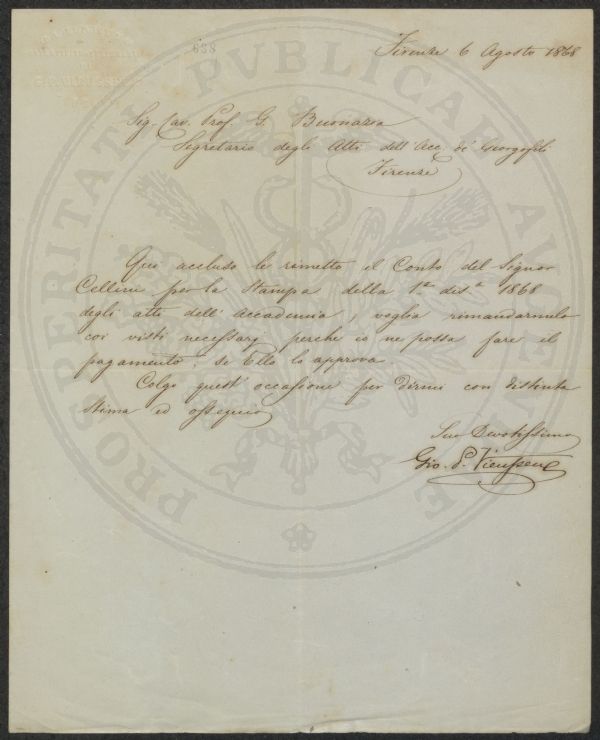 688
Firenze 6 Agosto 1868
Sig. Cav. Prof. G. Buonazia
Segretario degli Atti dell'Acc. de' Georgofili
Firenze
Quì accluso le rimetto il Conto del Signor
Cellini per la Stampa della 1a. dis.a 1868
degli atti dell'accademia, voglia rimandarmelo
coi visti necessarj perche io ne possa fare il
pagamento, se Ella lo approva.
Colgo quest'occasione per dirmi con distinta
stima ed ossequio
Suo Devotissimo
Gio. P. Vieusseux
PROSPERITATI PUBLICAE AUGENDAE